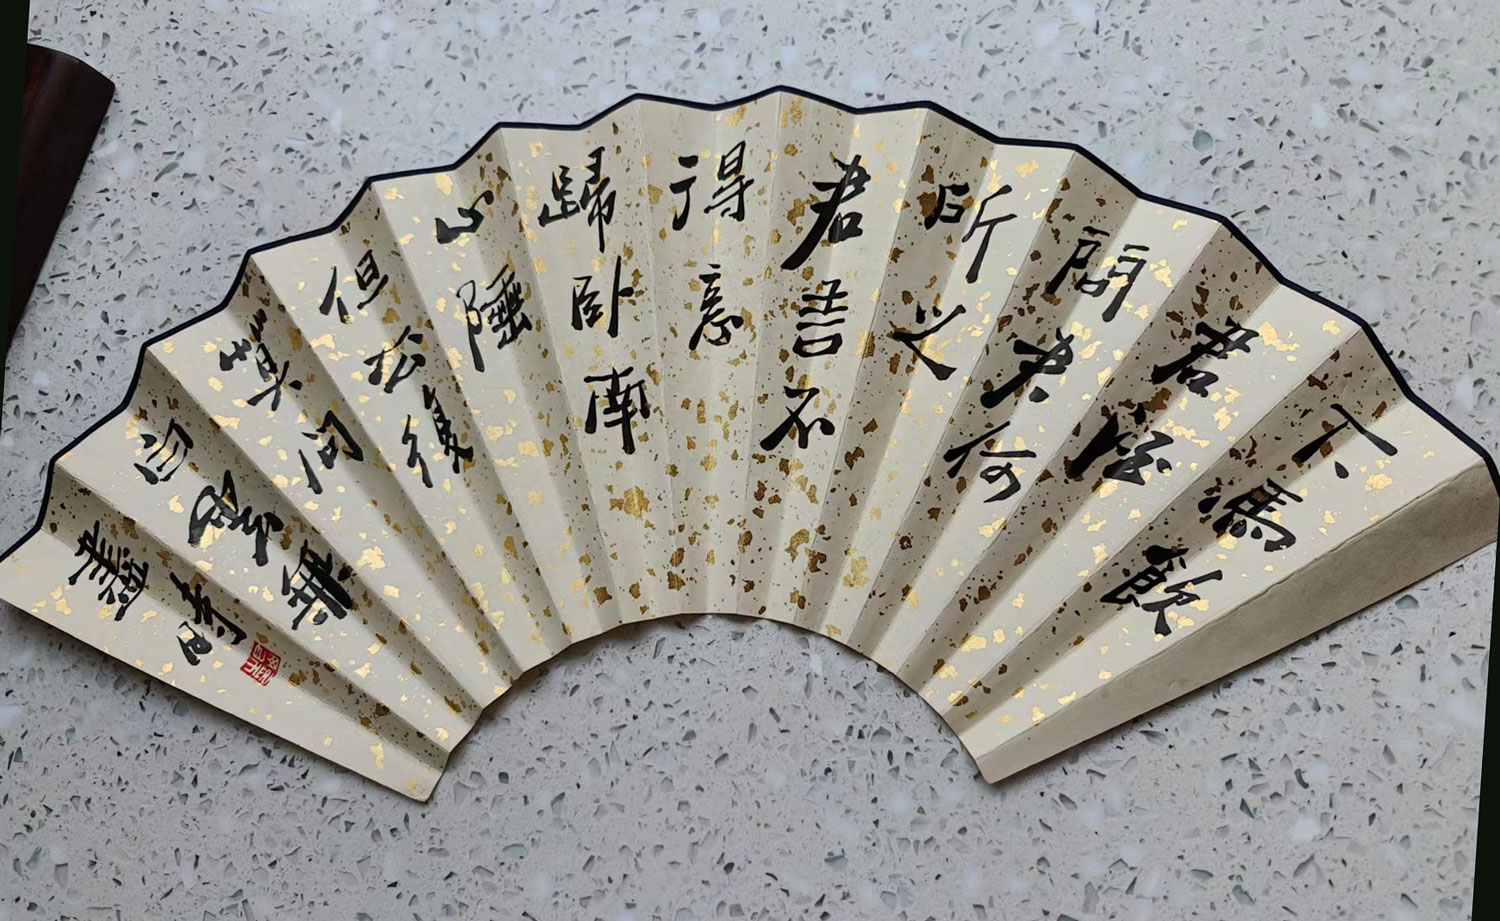 下馬飲
君酒
問君何
所之
君言不
得意
歸臥南
山陲
但去復
莫问
白雲無
盡時